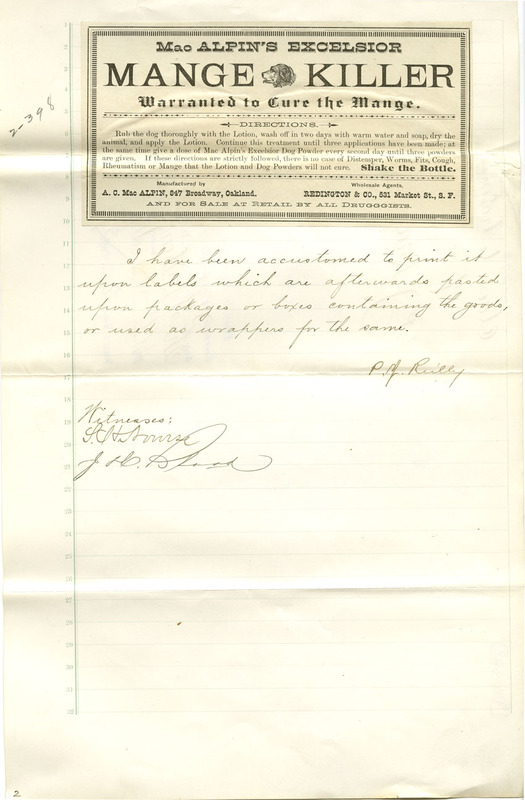 2-398
Mac ALPIN'S EXCELSIOR
MANGE KILLER
Warranted to Cure the Mange.
DIRECTIONS.
Rub the dog thoroughly with the Lotion, wash off in two days with warm water and soap, dry the
animal, and apply the Lotion. Continue this treatment until three applications have been made; at
the same time give a dose of Mac Alpin's Excelsior Dog Powder every second day until three powders
are given. If these directions are strictly followed, there is no case of Distemper, Worms, Fits, Cough,
Rheumatism or Mange that the Lotion and Dog Powders will not cure. Shake the Bottle.
Manufactured by
A. C. Mac ALPIN, 647 Broadway, Oakland.
Wholesale Agents,
REDINGTON & CO., 531 Market St., S. F.
AND FOR SALE AT RETAIL BY ALL DRUGGGISTS.
I have been accustomed to print it
upon labels which are afterwards pasted
upon packages or boxes containing the goods,
or used as wrappers for the same.
P. J. Reilly
Witnesses:
S. H. Nourse
J. H. Blood
2
3
4
5
6
7
8
9
10
11
12
13
14
15
16
17
18
19
20
21
22
23
24
25
26
27
28
29
30
31
32
2